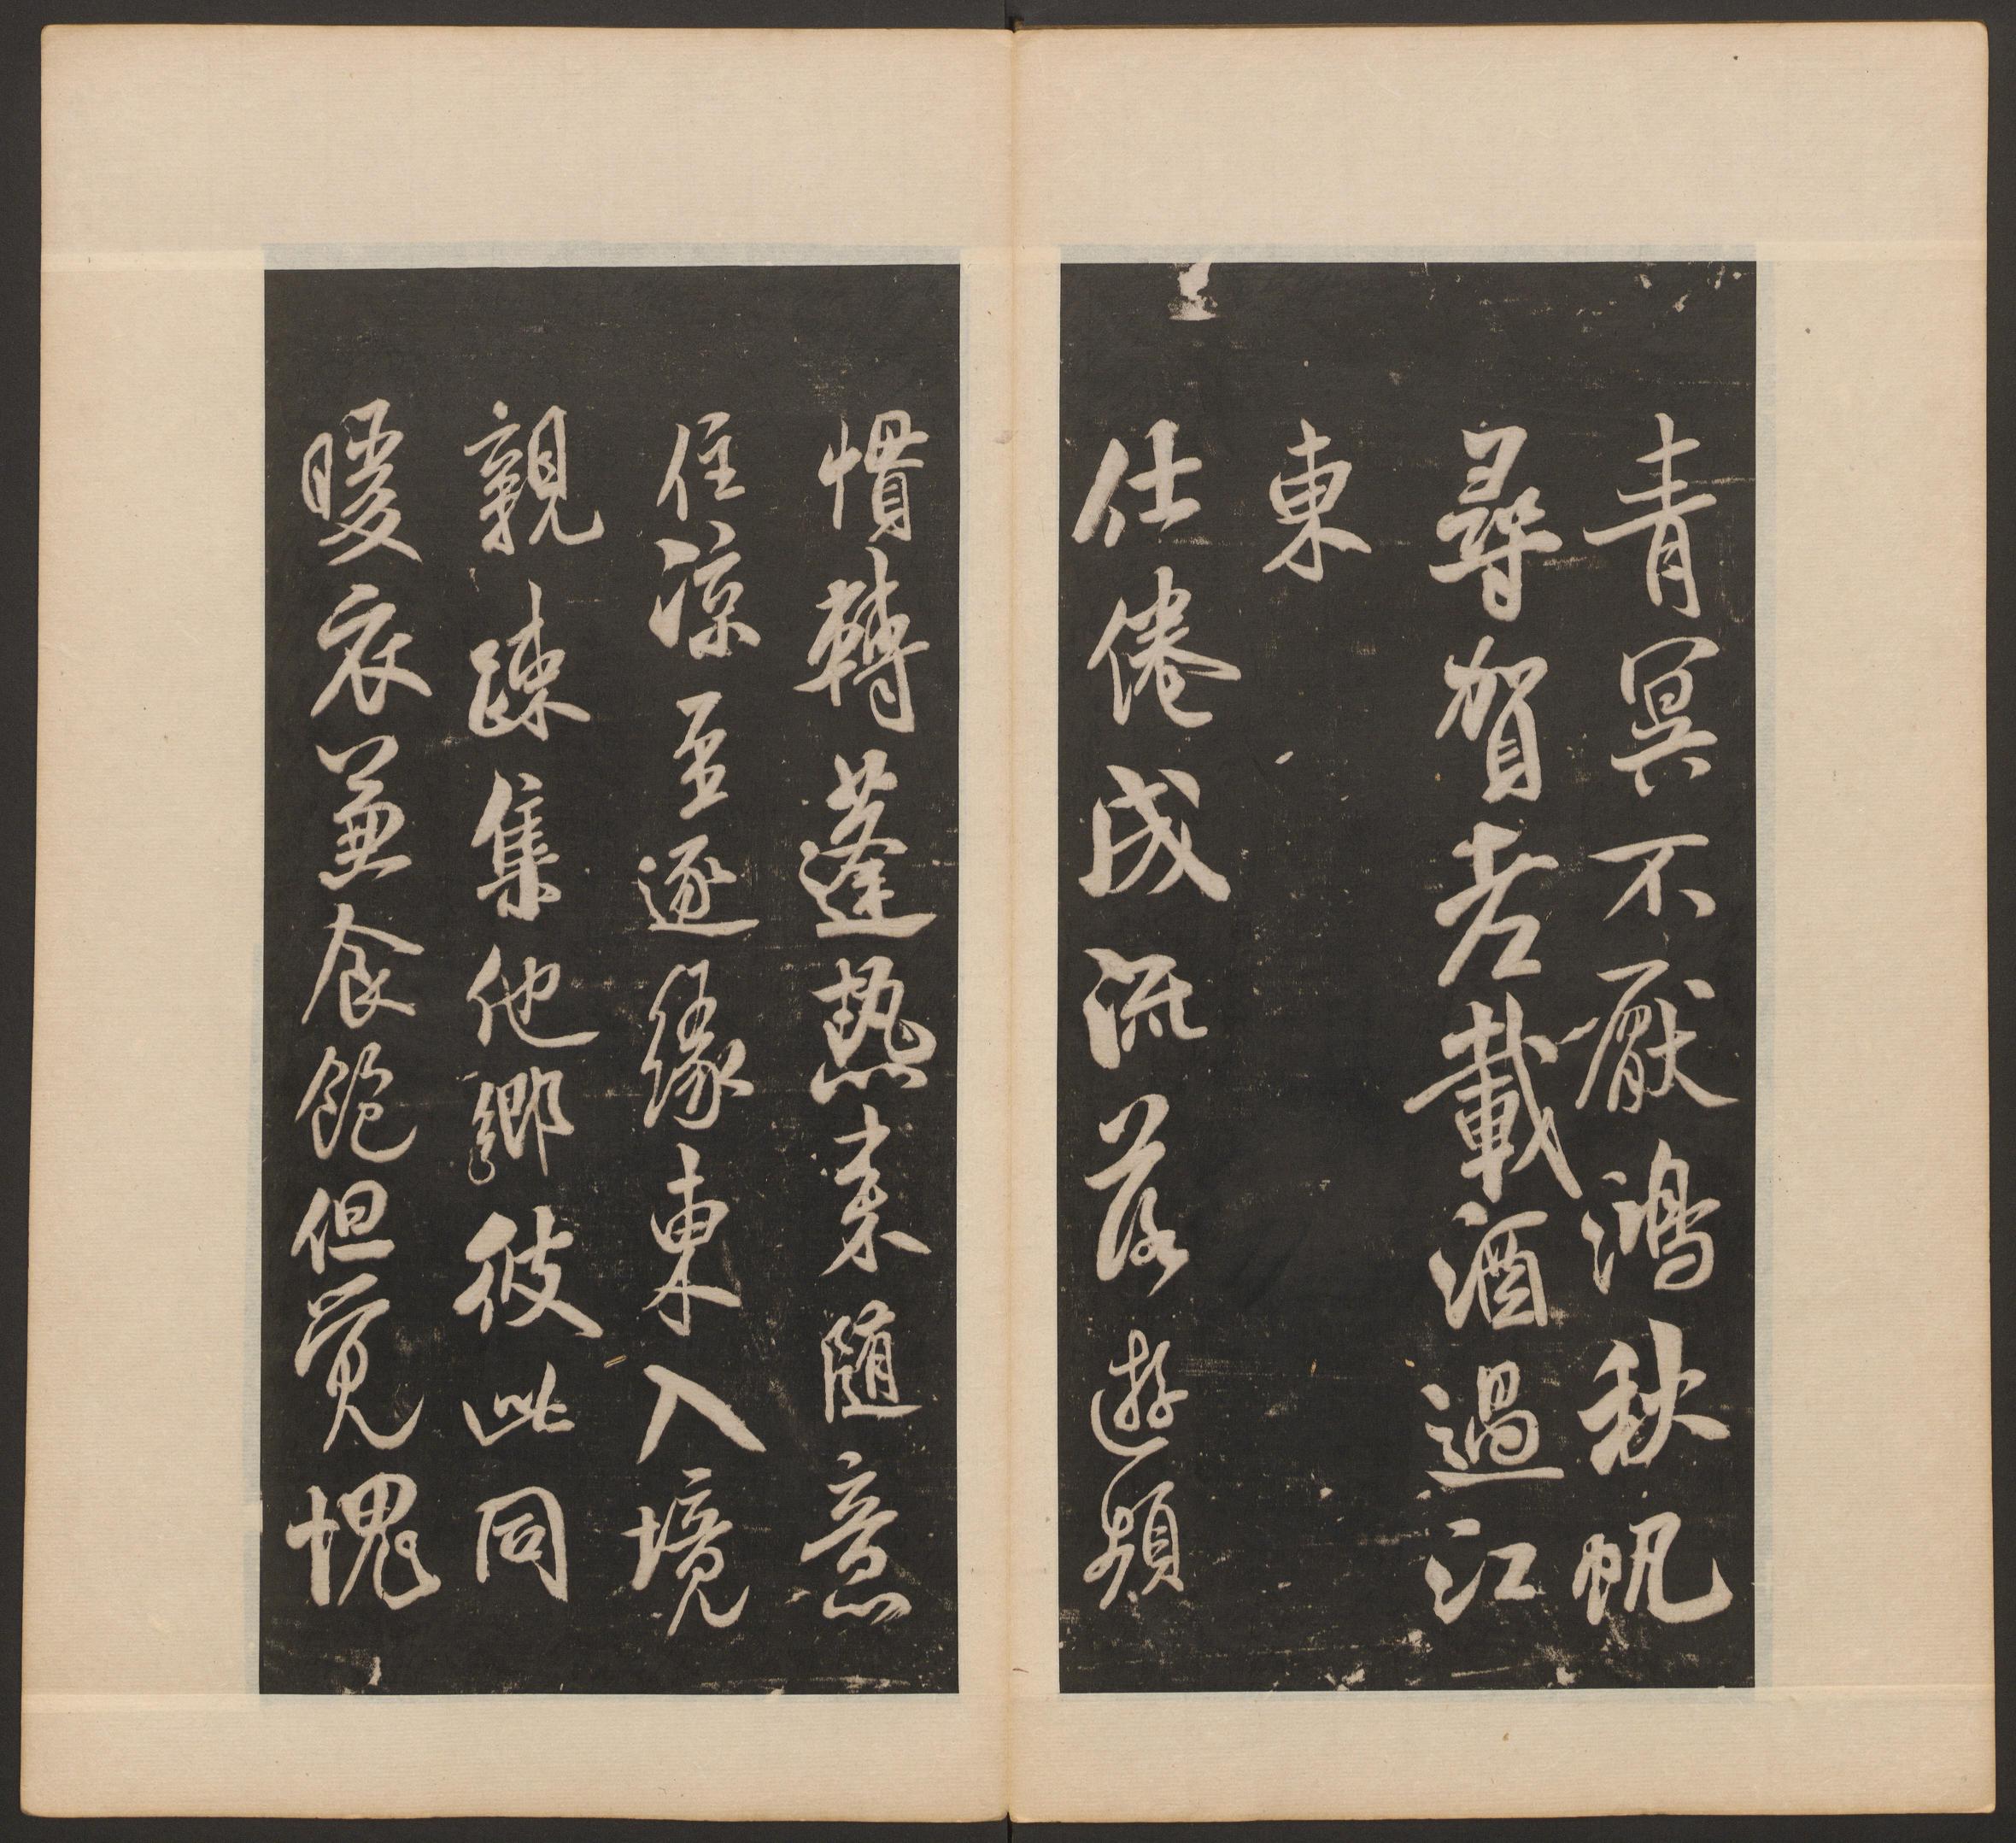 青冥不厭鴻秋帆
尋賀老載酒過江
東
仕倦成流落遊頻
慣轉蓬熱来随意
住凉至逐緣東入境
親疎集他鄉彼此同
暖衣兼食飽但覺愧